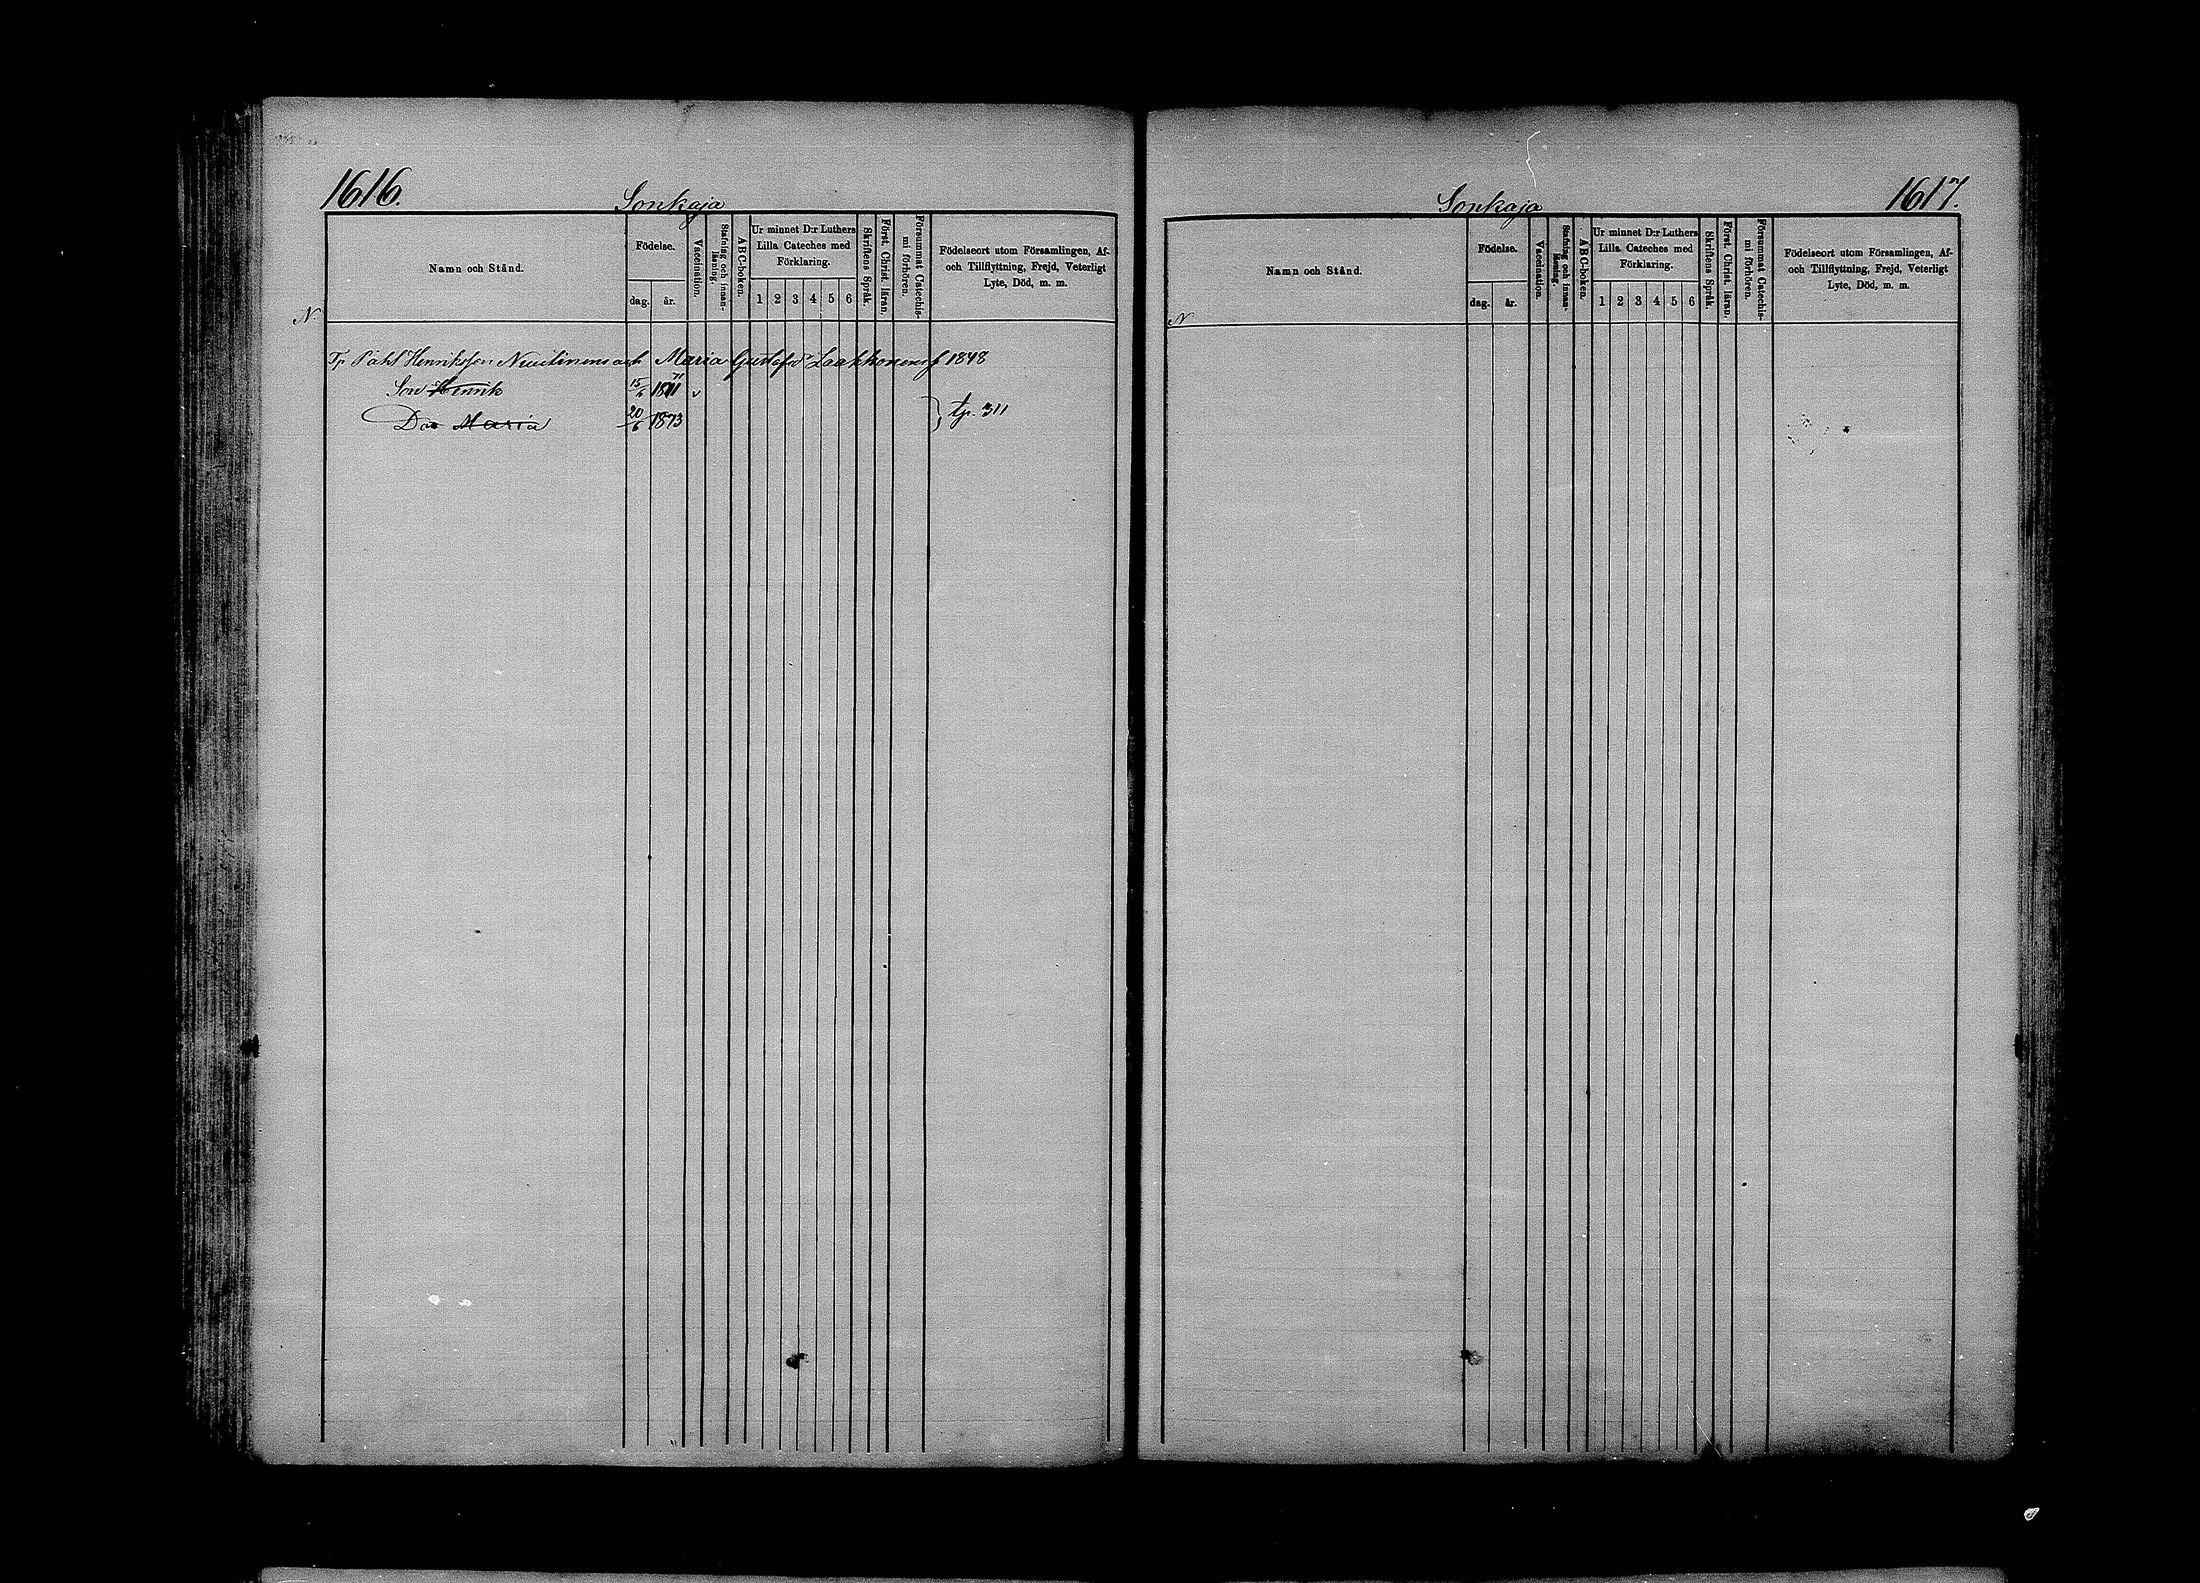 1616.
Sonkaja
Namn och Stånd.
Födelse.
dag. år.
Vaccination.
Stafning och innan-läsning.
A B C-boken.
Ur minnet D:r Luthers
Lilla Cateches med
Förklaring.
1 2 3 4 5 6
Skriftens Språk.
Först. Christ. läran.
Försummat Catechis-
mi förhören.
Födelseort utom Församlingen, Af-
och Tillflyttning, Frejd, Veterligt
Lyte, Död, m. m.
N
Påhl Henriksson Nuutinens och Maria Gustafsd:r Laakkonens f 1848
Son Henrik 15/6 1871 v
D:o Maria 20/6 1873
} tp. 311
Sonkaja
1617.
Namn och Stånd.
Födelse.
dag. år.
Vaccination.
Stafning och innan-läsning.
A B C-boken.
Ur minnet D:r Luthers
Lilla Cateches med
Förklaring.
1 2 3 4 5 6
Skriftens Språk.
Först. Christ. läran.
Försummat Catechis-
mi förhören.
Födelseort utom Församlingen, Af-
och Tillflyttning, Frejd, Veterligt
Lyte, Död, m. m.
N